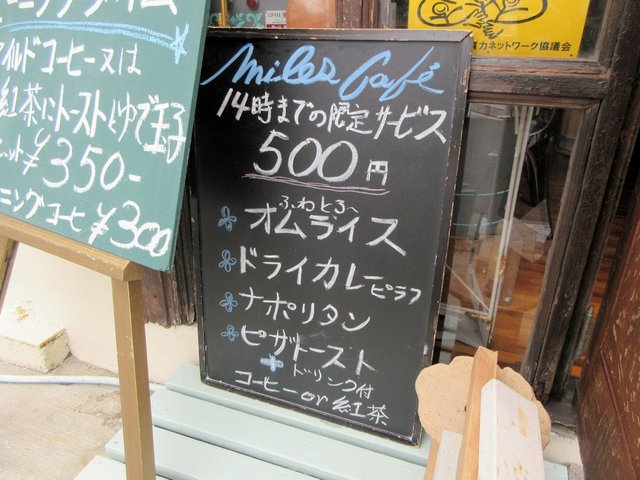 ニングタイム
イルドコーヒー又は
紅茶にトーストとゆで玉子
ット¥350-
ニングコーヒ ¥300
miles Café
14時までの限定サービス
500円
ふわとろ〜
オムライス
ドライカレーピラフ
ナポリタン
ピザトースト
+ドリンク付
コーヒー or 紅茶
育力ネットワーク協議会